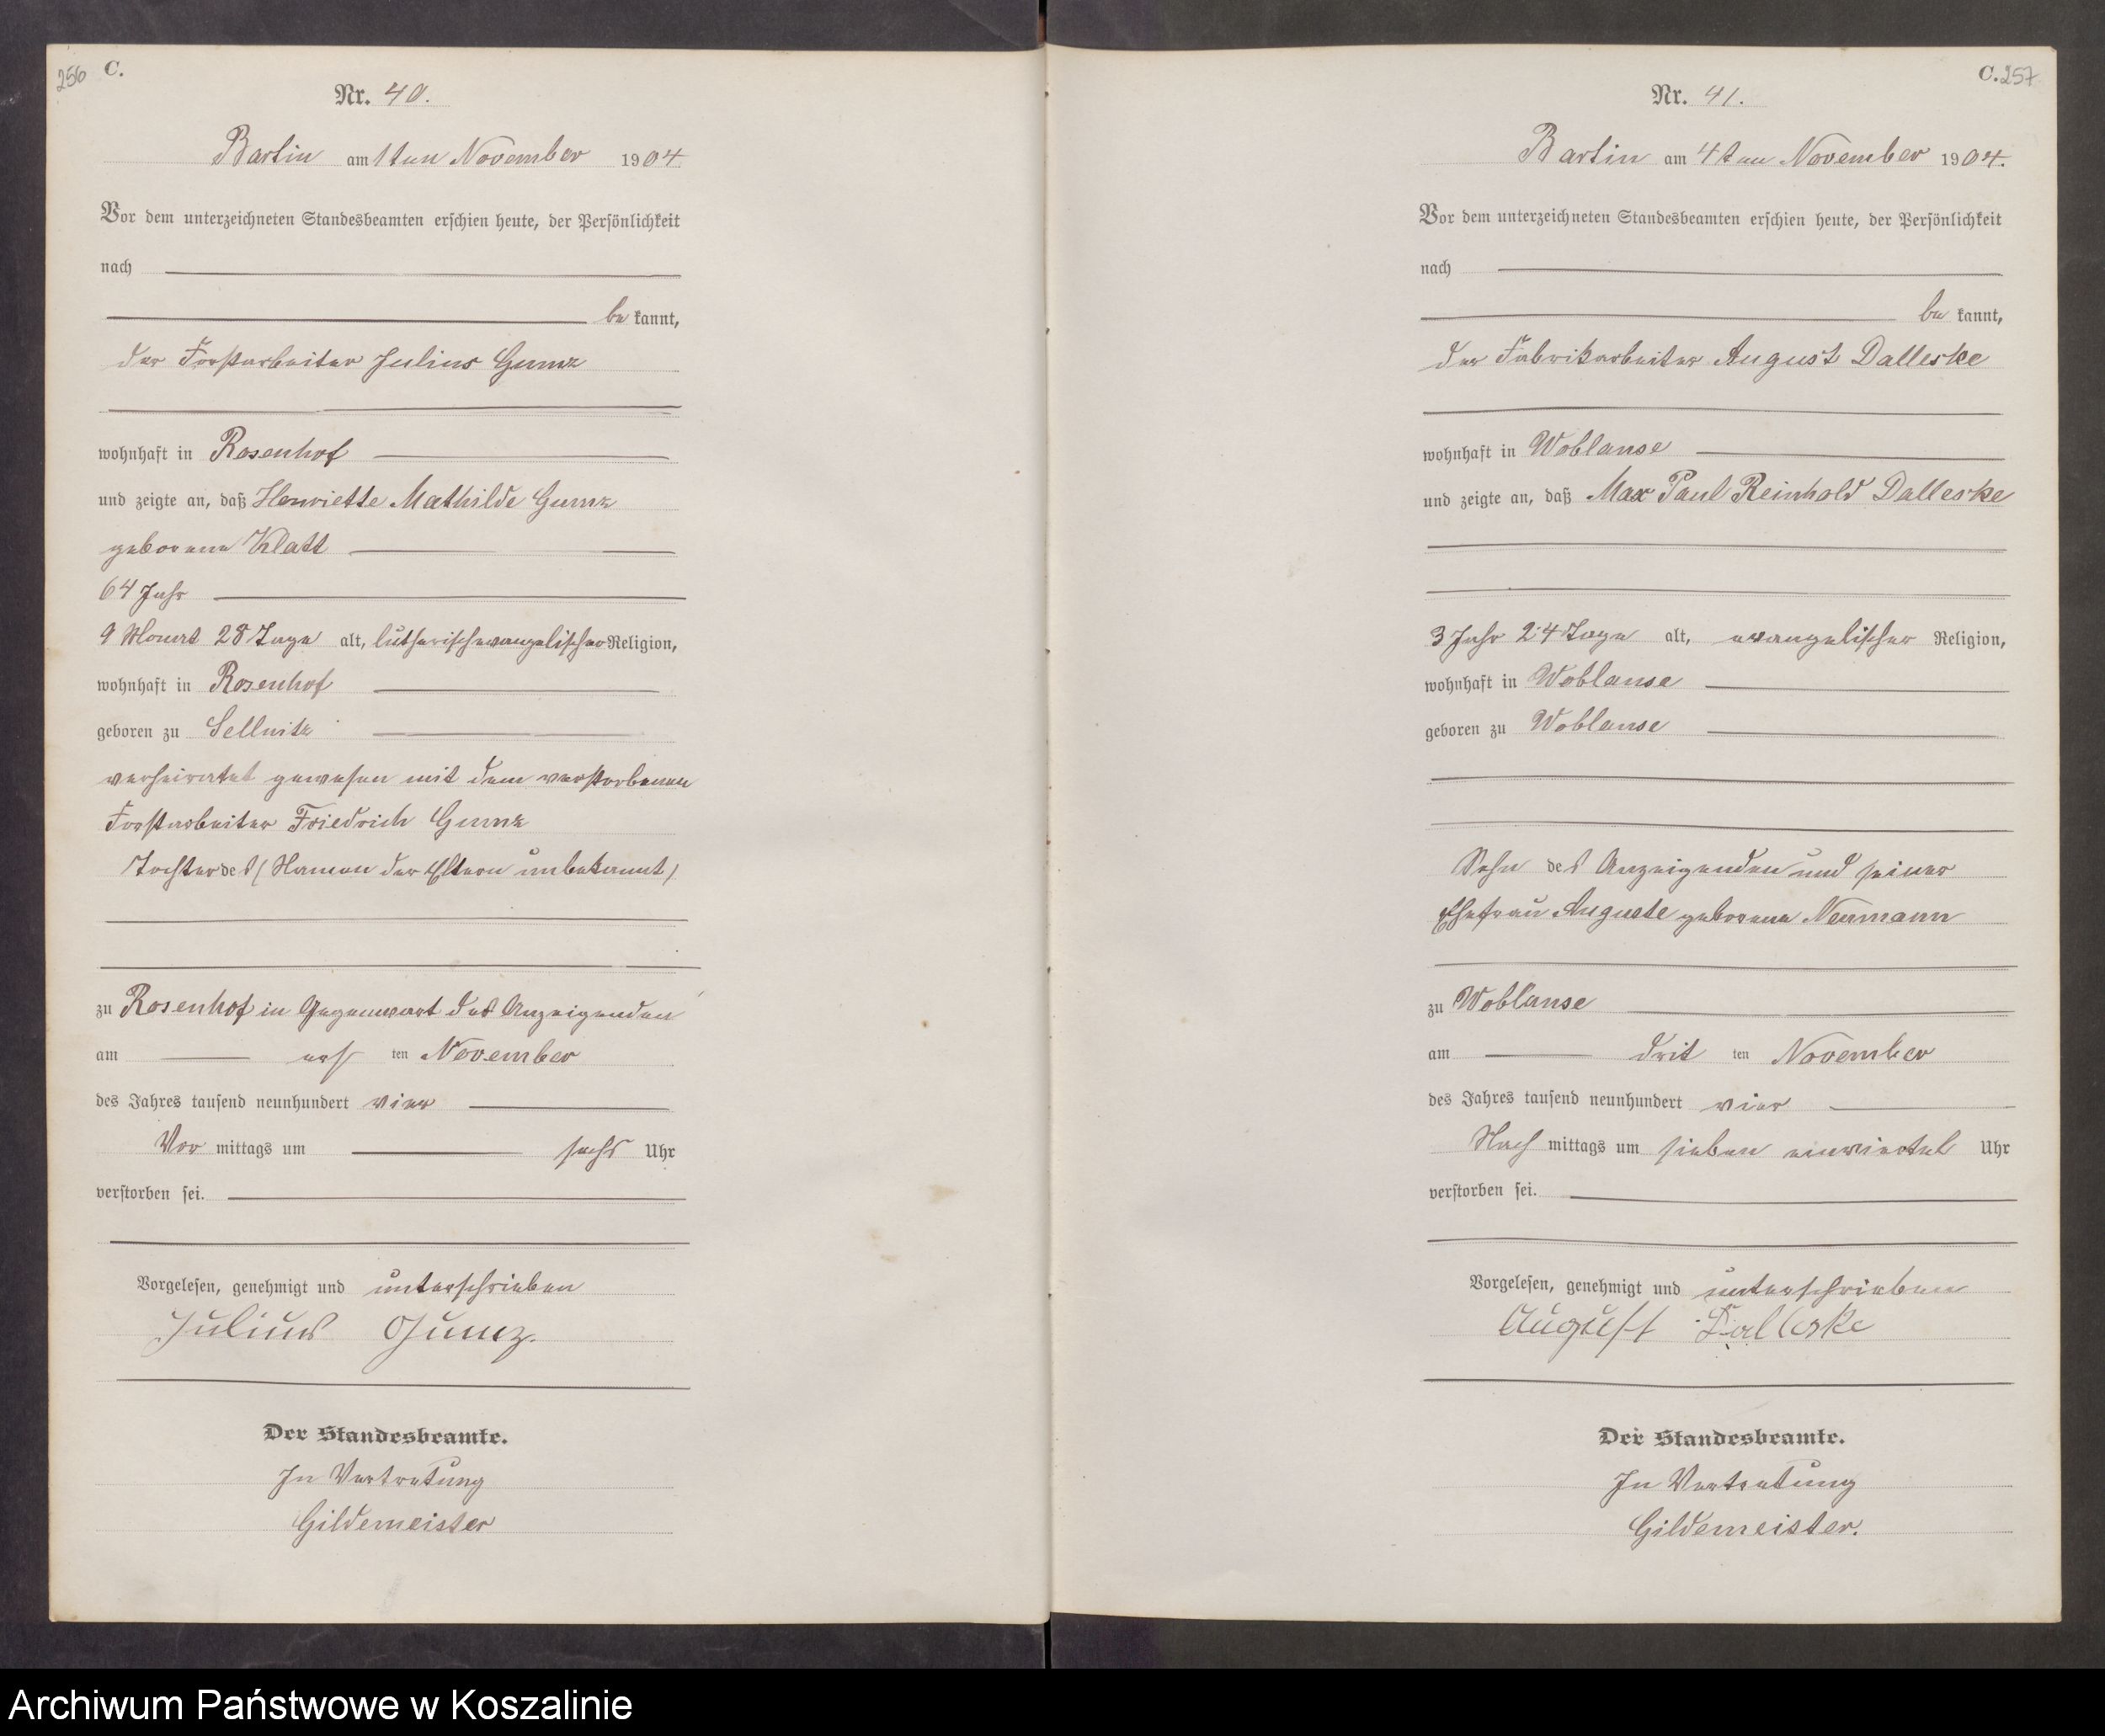 256 C.
Nr. 40.
Bartin am 1ten November 1904
Vor dem unterzeichneten Standesbeamten erschien heute, der Persönlichkeit
nach
be kannt,
der Forstarbeiter Julius Gumz
wohnhaft in Rosenhof
und zeigte an, daß Henriette Mathilde Gumz
geborene Klatt
64 Jahr
9 Monat 28 Tage alt, lutherischevangelischer Religion,
wohnhaft in Rosenhof
geboren zu Sellnitz
verheiratet gewesen mit dem verstorbenen
Forstarbeiter Friedrich Gumz
Tochter des (Namen der Eltern unbekannt)
zu Rosenhof in Gegenwart des Anzeigenden
am ers ten November
des Jahres tausend neunhundert vier
Vor mittags um sechs Uhr
verstorben sei.
Vorgelesen, genehmigt und unterschrieben
Julius Gumz.
Der Standesbeamte.
In Vertretung
Gildemeister
C. 257
Nr. 41.
Bartin am 4ten November 1904.
Vor dem unterzeichneten Standesbeamten erschien heute, der Persönlichkeit
nach
be kannt,
der Fabrikarbeiter August Dalleske
wohnhaft in Woblanse
und zeigte an, daß Max Paul Reinhold Dalleske
3 Jahr 24 Tage alt, evangelischer Religion,
wohnhaft in Woblanse
geboren zu Woblanse
Sohn des Anzeigenden und seiner
Ehefrau Auguste geborene Neumann
zu Woblanse
am drit ten November
des Jahres tausend neunhundert vier
Nach mittags um sieben einviertel Uhr
verstorben sei.
Vorgelesen, genehmigt und unterschrieben
August Dalleske
Der Standesbeamte.
In Vertretung
Gildemeister.
Archiwum Państwowe w Koszalinie